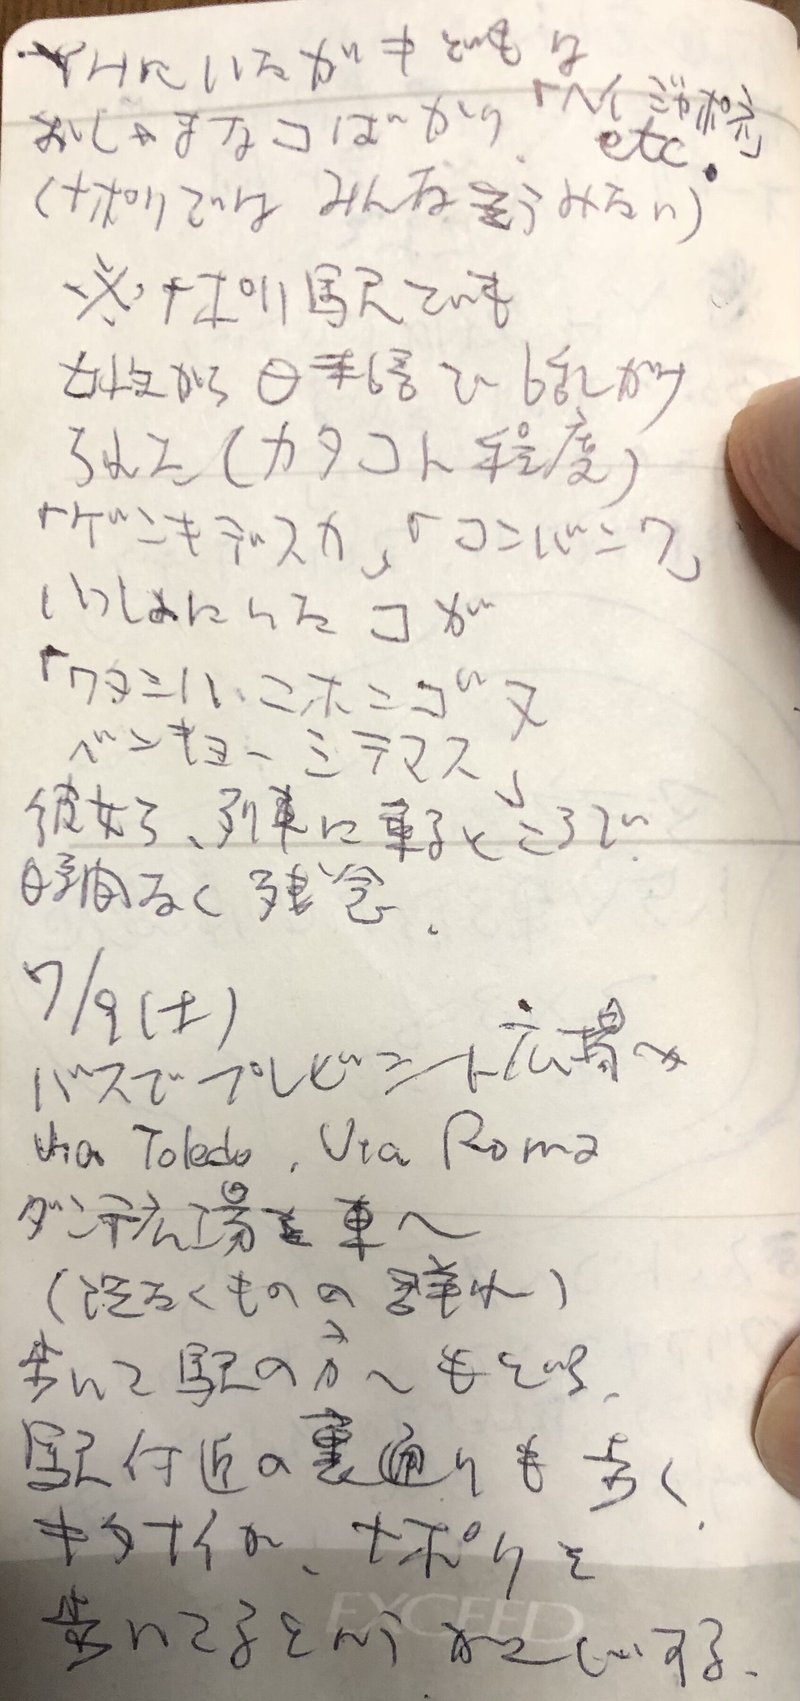 YHにいるガキどもは
おしゃまなコばかり.「ヘイジャポネ」
etc.
(ナポリではみんな言うみたい)
※ナポリ駅でも
女は から日本語で話しかけ
られた(カタコト程度)
「ゲンキデスカ」「コンバンワ」
いっしょにいたコが
「ワタシハ、ニホンゴヌ
ベンキョーシテマス」
彼女ら、列車に乗るところで
時間なく残念.
7/9(土)
バスでプレビシート広場へ
Via Toledo, Via Roma
ダンテ広場を 車へ
( なくものの群れ)
歩いて駅の方へもどる.
駅付近の裏通りも歩く.
キタナイが、ナポリを
歩いてるという かんじがする.
EXCEED